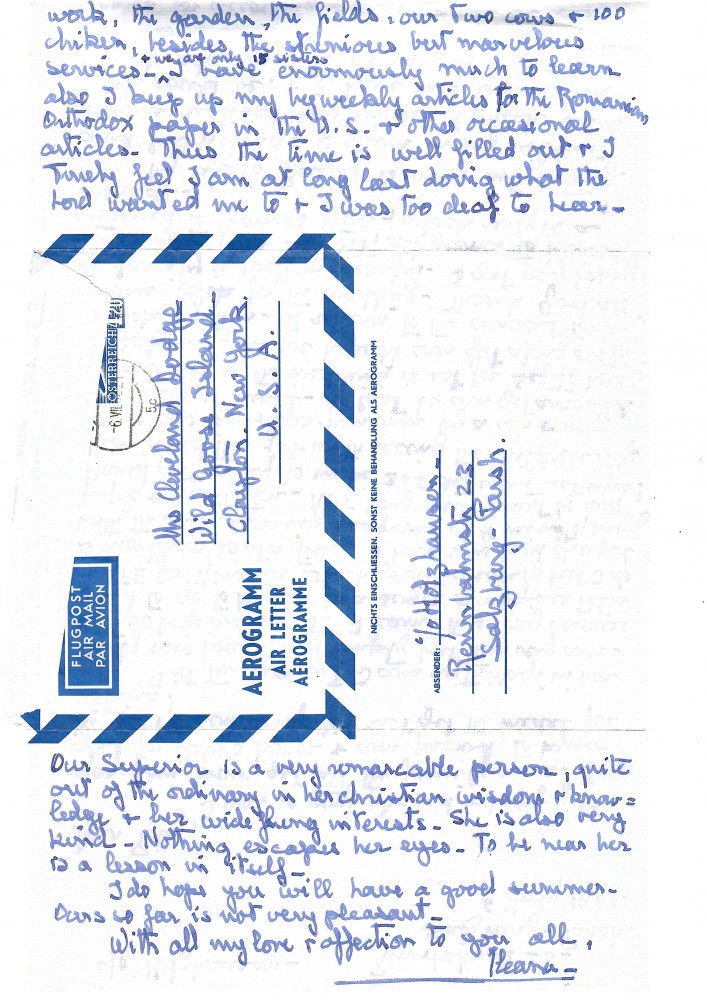 work, the garden, the fields, our two cows + 100
chiken, besides the strenious but marvelous
+ we are only 15 sisters
services. I have enormously much to learn
also I keep up my byweekly articles for the Romanian
Orthodox paper in the U.S. + other occasional
articles. Thus the time is well filled out + I
feel I am at long last doing what the
Lord wanted me to + I was too deaf to hear.
ÖSTERREICH
-6.VII.
Mrs Cleveland Dodge
Wild Goose Island
Clayton. New York.
U.S.A.
FLUGPOST
AIR MAIL
PAR AVION
AEROGRAMM
AIR LETTER
AÉROGRAMME
NICHTS EINSCHLIESSEN, SONST KEINE BEHANDLUNG ALS AEROGRAMM
ABSENDER: c/o Holzhausen.
Rennbahnstr 23
Salzburg - Parsh.
Our Superior is a very remarcable person, quite
out of the ordinary in her christian wisdom + know=
ledge + her wide flung interests. She is also very
kind. Nothing escapes her eyes. To be near her
is a lesson in itself.
I do hope you will have a good summer.
Ours so far is not very pleasant.
With all my love + affection to you all,
Ileana